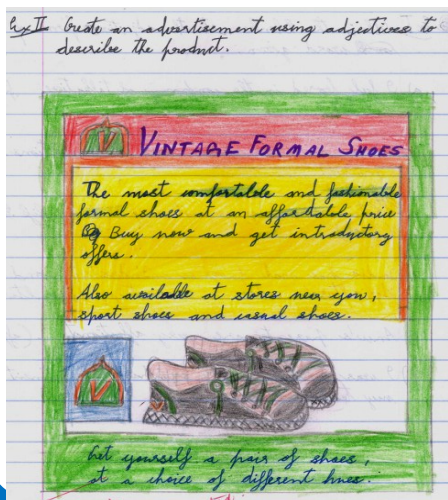 Ex II Create an advertisement using adjectives to
describe the product.
VINTAGE FORMAL SHOES
The most comfortable and fashionable
formal shoes at an affordable price
Buy now and get introductory
offers.
Also available at stores near you,
sport shoes and casual shoes.
Get yourself a pair of shoes,
at a choice of different hues.